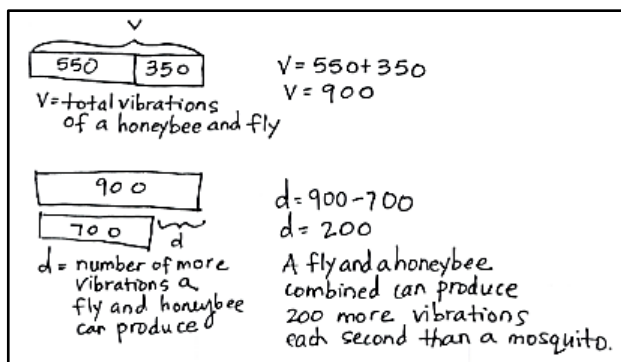 V
550 350
V=550+350
V=900
V=total vibrations
of a honeybee and fly
900
700
d
d=900-700
d=200
d = number of more
vibrations a
fly and honeybee
can produce
A fly and a honeybee
combined can produce
200 more vibrations
each second than a mosquito.